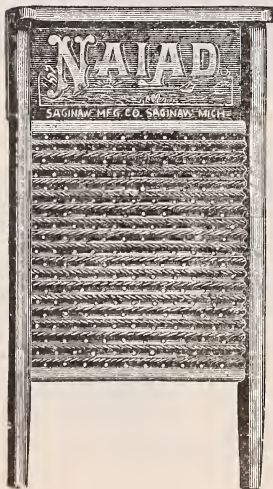 NAIAD.
SAGINAW MFG. CO. SAGINAW MICH.